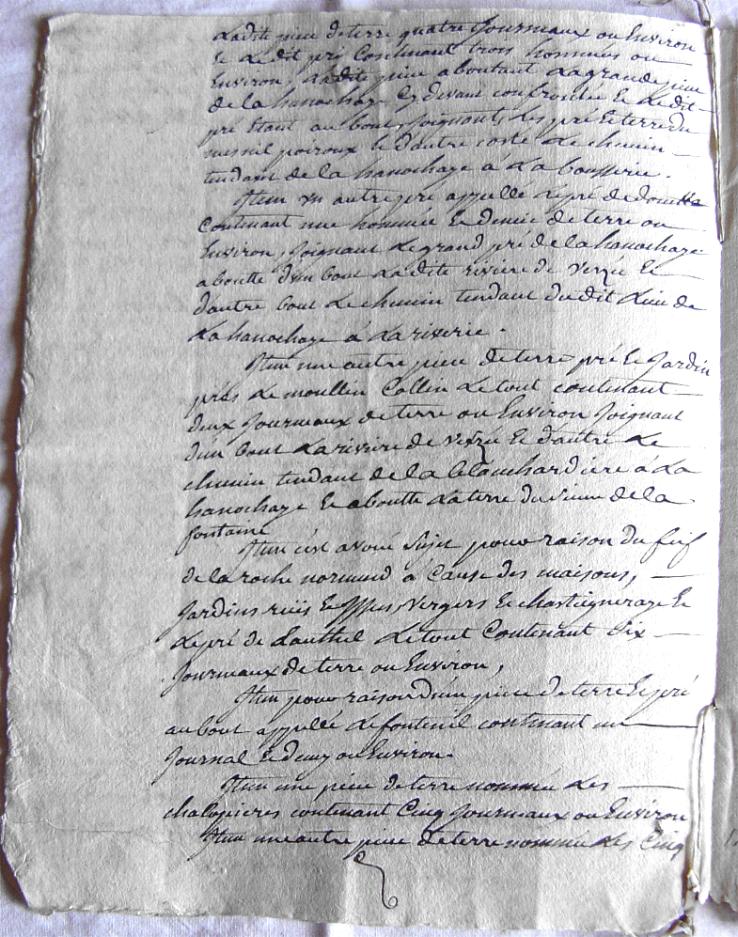 Ladite piece de terre quatre Journeaux ou Environ
Et Ledit pré Contenant trois hommées ou
Environ, Ladite piece aboutant La grande piece
de la hanochaye Cy devant confrontée Et Ledit
pré Etant au bout, Joignant Les pré Et terre du
mesnil poiroux Et d'autre costé Le chemin
tendant de la hanochaye á La bousserie.
Item un autre pré appellé Le pré de
Contenant une hommée Et demie de terre ou
Environ, Joignant Le grand pré de la hanochaye
aboutte d'un bout Ladite riviere de Verzée Et
d'autre bout Le chemin tendant dudit Lieu de
La hanochaye á La riverie.
Item une autre piece de terre pré Et Jardin
prés Le moullin Collin Le tout contenant
deux Journeaux de terre ou Environ Joignant
d'un bout La riviere de Verzée Et d'autre Le
chemin tendant de la blanchardiere á La
hanochaye Et aboutte La terre du sieur de la
fontaine
Item s'est avoué Sujet pour raison du fief
de la roche normand á Cause des maisons,
Jardins rües Et Issües, Vergers Et chasteigneraye Et
Le pré de Lautheil Le tout Contenant Six
Journeaux de terre ou Environ,
Item pour raison d'un piece de terre Et pré
au bout appellé Le fonteuil contenant un
Journal Et demy ou Environ.
Item une piece de terre nommée Les
chalopieres contenant Cinq Journeaux ou Environ
Item une autre piece de terre nommée Les Cinq